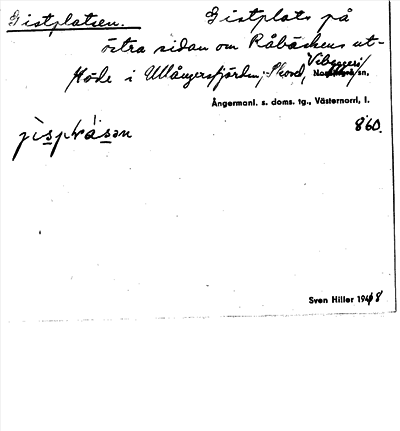 Gistplatsen. Gistplats på
östra sidan om Råbäckens ut-
flöde i Ullångersfjorden, Skord, Vibyggerå/sn,
Ångermanl. s. doms. tg., Västernorrl. l.
860.
Sven Hiller 1948